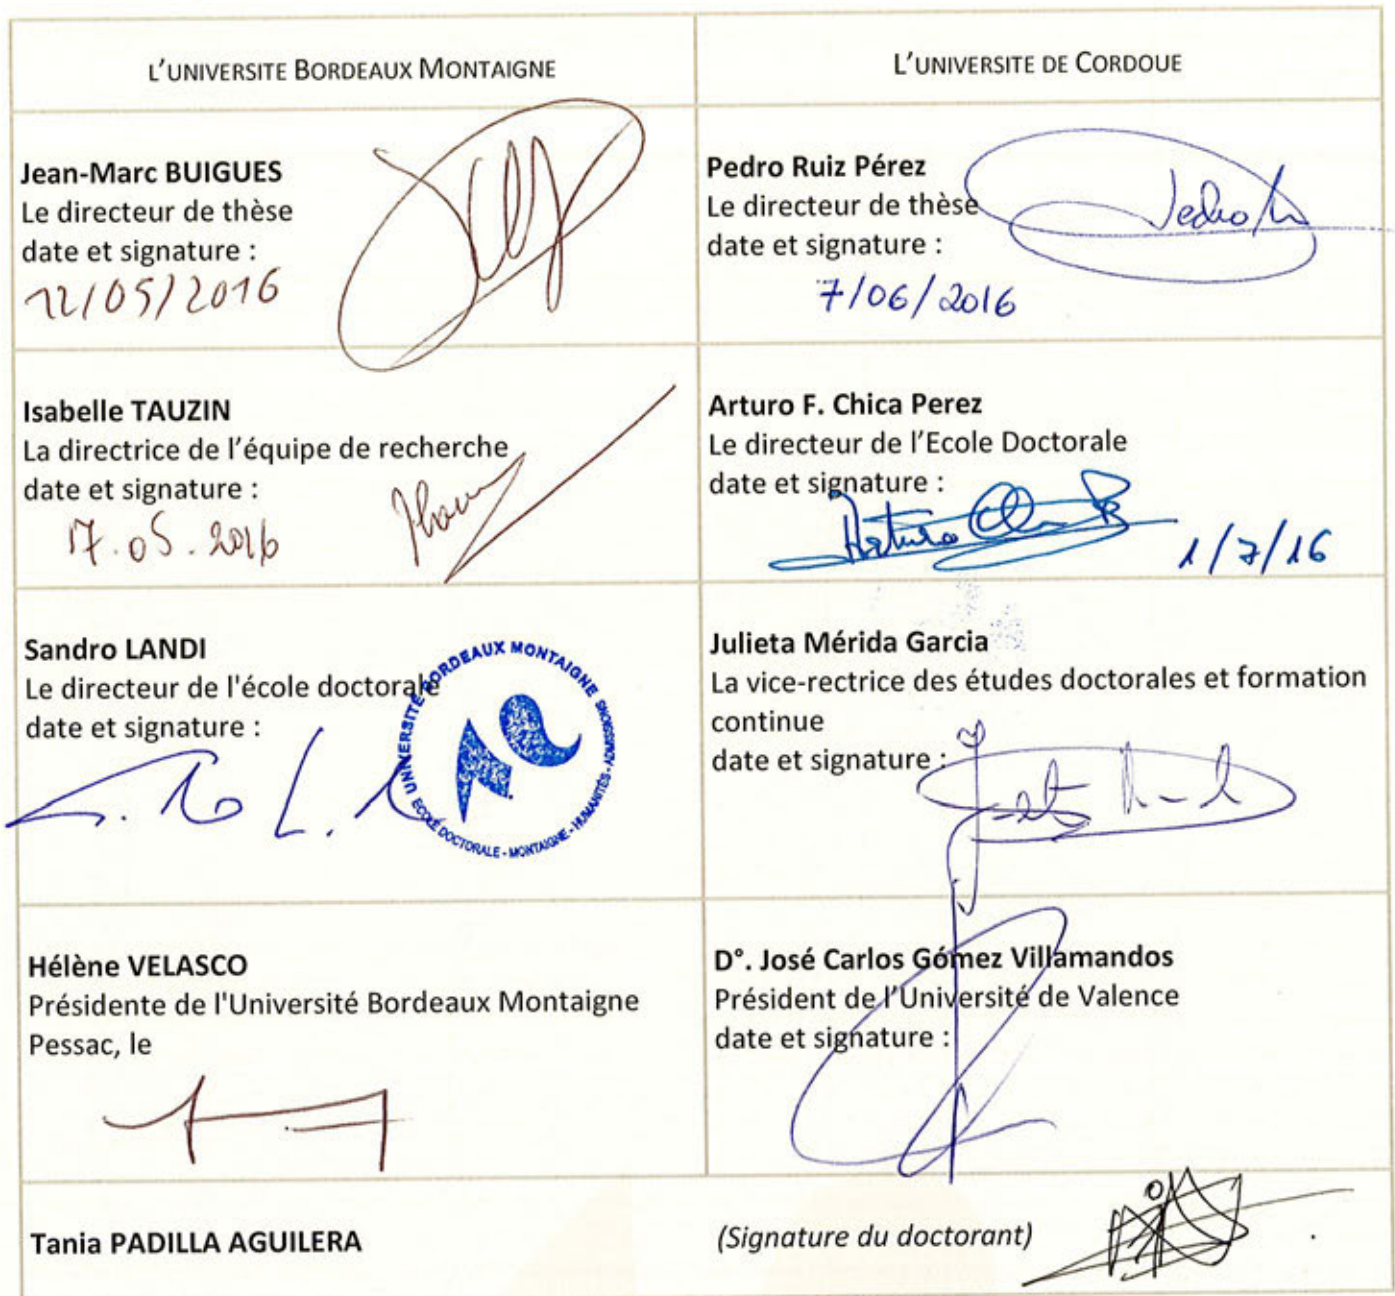 L'UNIVERSITE BORDEAUX MONTAIGNE
L'UNIVERSITE DE CORDOUE
Jean-Marc BUIGUES
Le directeur de thèse
date et signature :
12/05/2016
Pedro Ruiz Pérez
Le directeur de thèse
date et signature :
Pedro
7/06/2016
Isabelle TAUZIN
La directrice de l'équipe de recherche
date et signature :
17.05.2016
Arturo F. Chica Perez
Le directeur de l'Ecole Doctorale
date et signature :
Arturo
1/7/16
Sandro LANDI
Le directeur de l'école doctorale
date et signature :
UNIVERSITÉ BORDEAUX MONTAIGNE
ECOLE DOCTORALE - MONTAIGNE - HUMANITÉS - ADMISSIONS
Julieta Mérida Garcia
La vice-rectrice des études doctorales et formation
continue
date et signature :
Hélène VELASCO
Présidente de l'Université Bordeaux Montaigne
Pessac, le
D°. José Carlos Gómez Villamandos
Président de l'Université de Valence
date et signature :
Tania PADILLA AGUILERA
(Signature du doctorant)